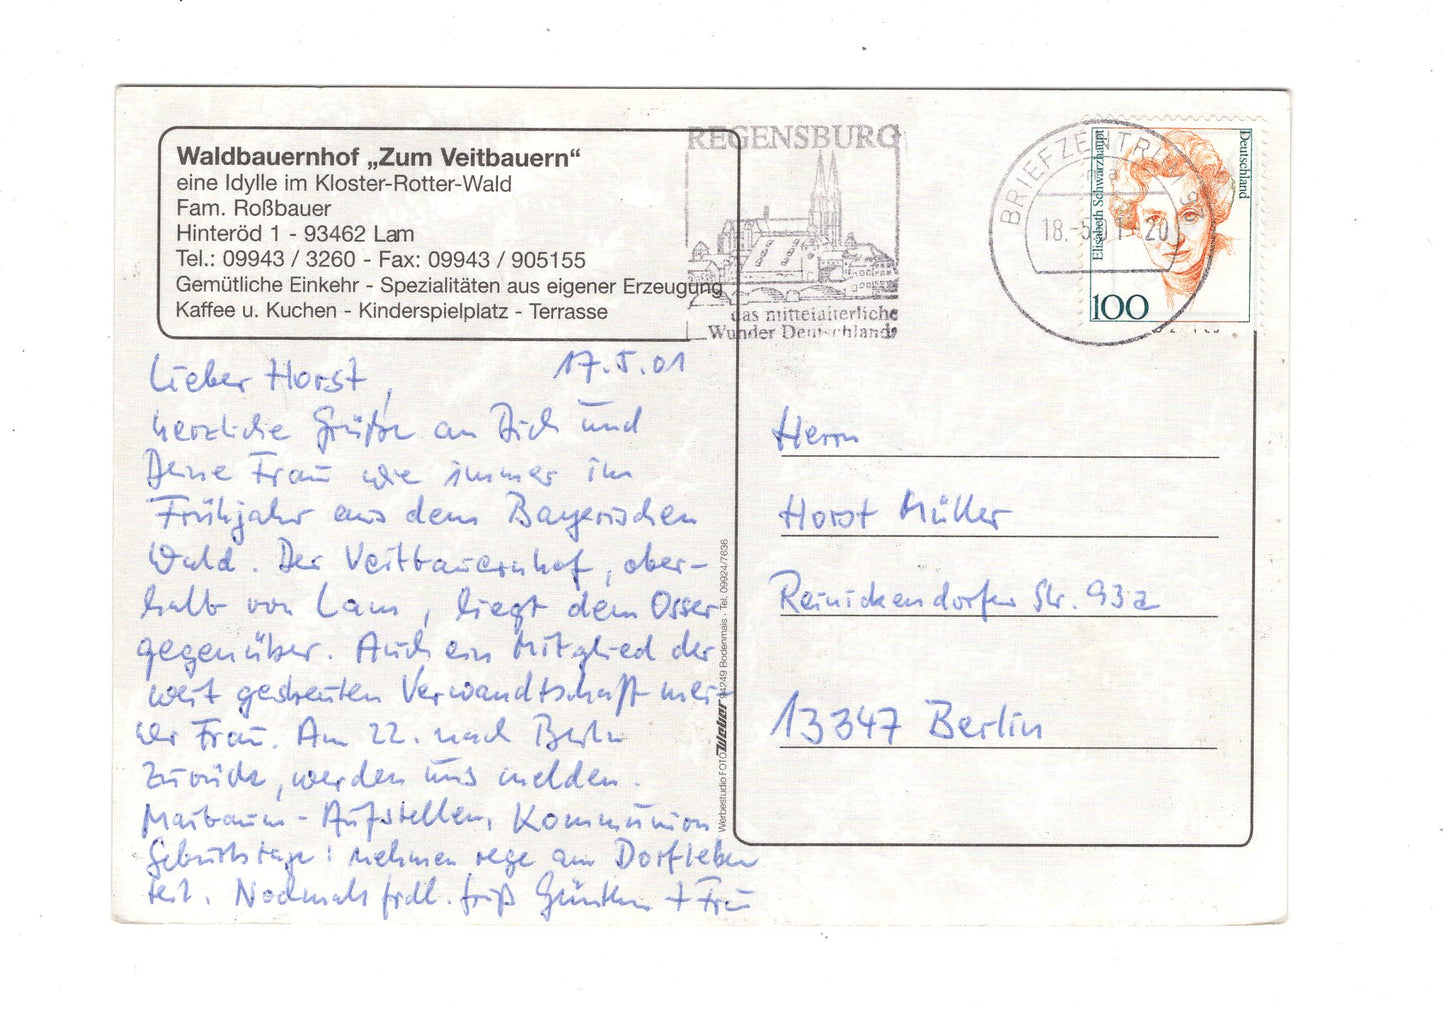 Waldbauernhof „Zum Veitbauern“
eine Idylle im Kloster-Rotter-Wald
Fam. Roßbauer
Hinteröd 1 - 93462 Lam
Tel.: 09943 / 3260 - Fax: 09943 / 905155
Gemütliche Einkehr - Spezialitäten aus eigener Erzeugung
Kaffee u. Kuchen - Kinderspielplatz - Terrasse
REGENSBURG
das mittelalterliche
Wunder Deutschlands
BRIEFZENTRUM 93
ma
18.-5.01-20
Elisabeth Schwarzhaupt
Deutschland
100
17.5.01
Lieber Horst,
herzliche Grüße an Dich und
Deine Frau wie immer im
Frühjahr aus dem Bayerischen
Wald. Der Veitbauernhof, ober-
halb von Lam, liegt dem Osser
gegenüber. Auch ein Mitglied der
weit gestreuten Verwandtschaft mei-
ner Frau. Am 22. nach Berlin
zurück, werden uns melden.
Maibaum-Aufstellen, Kommunion
Geburtstage: nehmen rege am Dorfleben
teil. Nochmals frdl. Gruß Günther + Frau
Herrn
Horst Müller
Reinickendorfer Str. 93a
13347 Berlin
Werbestudio FOTO Weber 94249 Bodenmais · Tel. 09924/7636